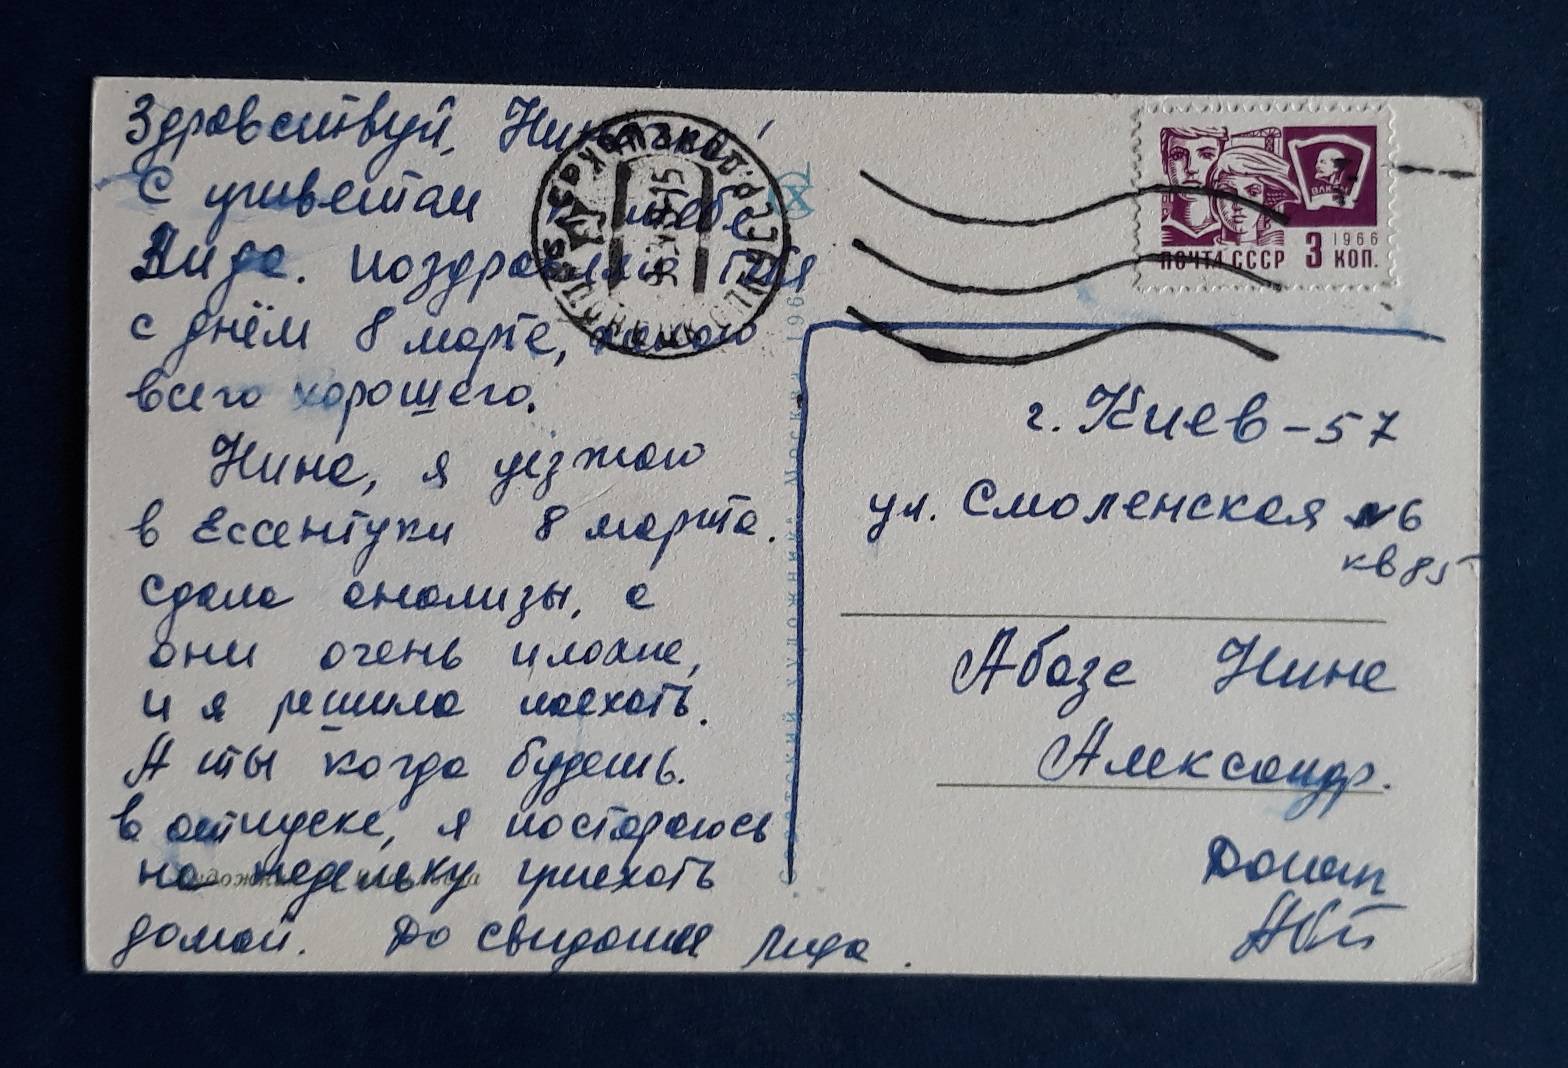 Здравствуй, Нина!
С приветом к тебе
Лида. Поздравляю тебя
с днём 8 марта, желаю
всего хорошего.
Нина, я уезжаю
в Ессентуки 8 марта.
сдала анализы, а
они очень плохие,
и я решила поехать.
А ты когда будешь.
в отпуске, я постараюсь
на недельку приехать
домой. До свидания Лида.
1966
ПОЧТА СССР 3 КОП.
г. Киев-57
ул. Смоленская №6
кв 85
Абазе Нине
Александр.